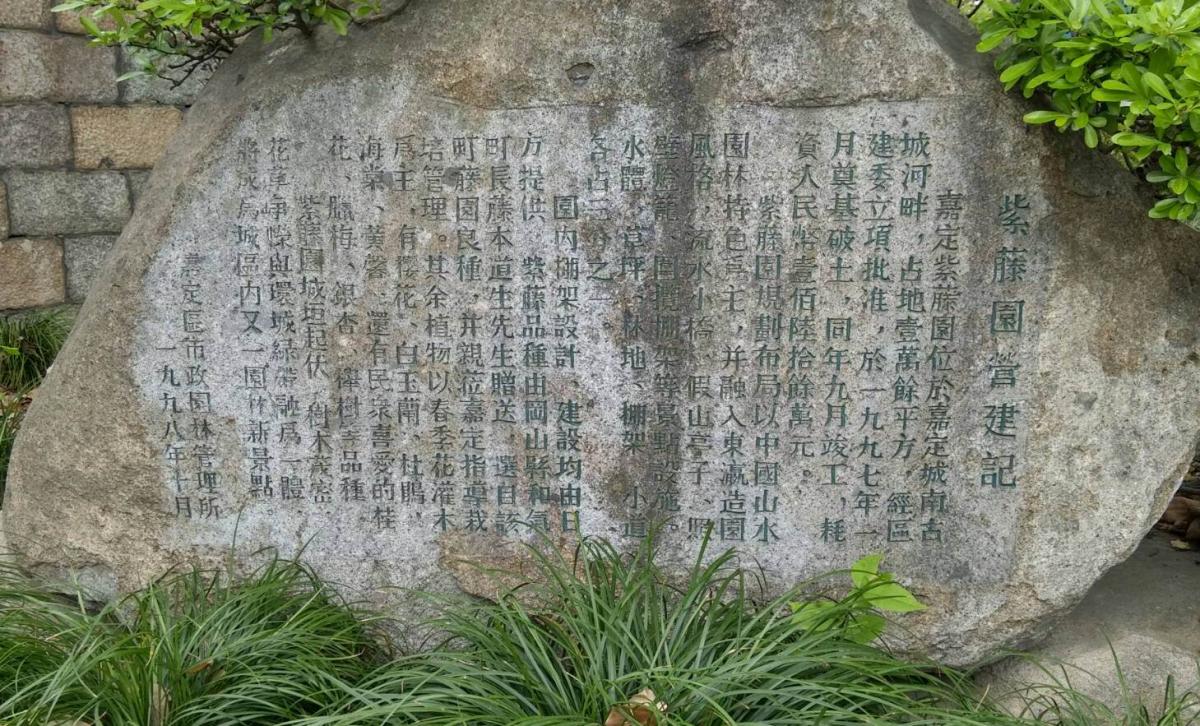 紫藤園營建記
嘉定紫藤園位於嘉定城南古
城河畔，占地壹萬餘平方，經區
建委立項批准，於一九九七年一
月奠基破土，同年九月竣工，耗
資人民幣壹佰陸拾餘萬元。
紫藤園規劃布局以中國山水
園林特色爲主，并融入東瀛造園
風格，流水小橋、假山亭子、照
壁燈籠、圍攔棚架等景點設施。
水體、草坪、林地、棚架、小道
各占三分之一。
園内棚架設計、建設均由日
方提供，紫藤品種由岡山縣和氣
町長藤本道生先生贈送，選自該
町藤園良種，并親莅嘉定指導栽
培管理。其余植物以春季花灌木
爲主，有櫻花、白玉蘭、杜鵑、
海棠、黃馨，還有民衆喜愛的桂
花、臘梅、銀杏、櫸樹等品種。
紫藤園城垣起伏，樹木茂密，
花草爭嶸與環城緑帶融爲一體，
將成爲城區内又一園林新景點。
嘉定區市政園林管理所
一九九八年十月